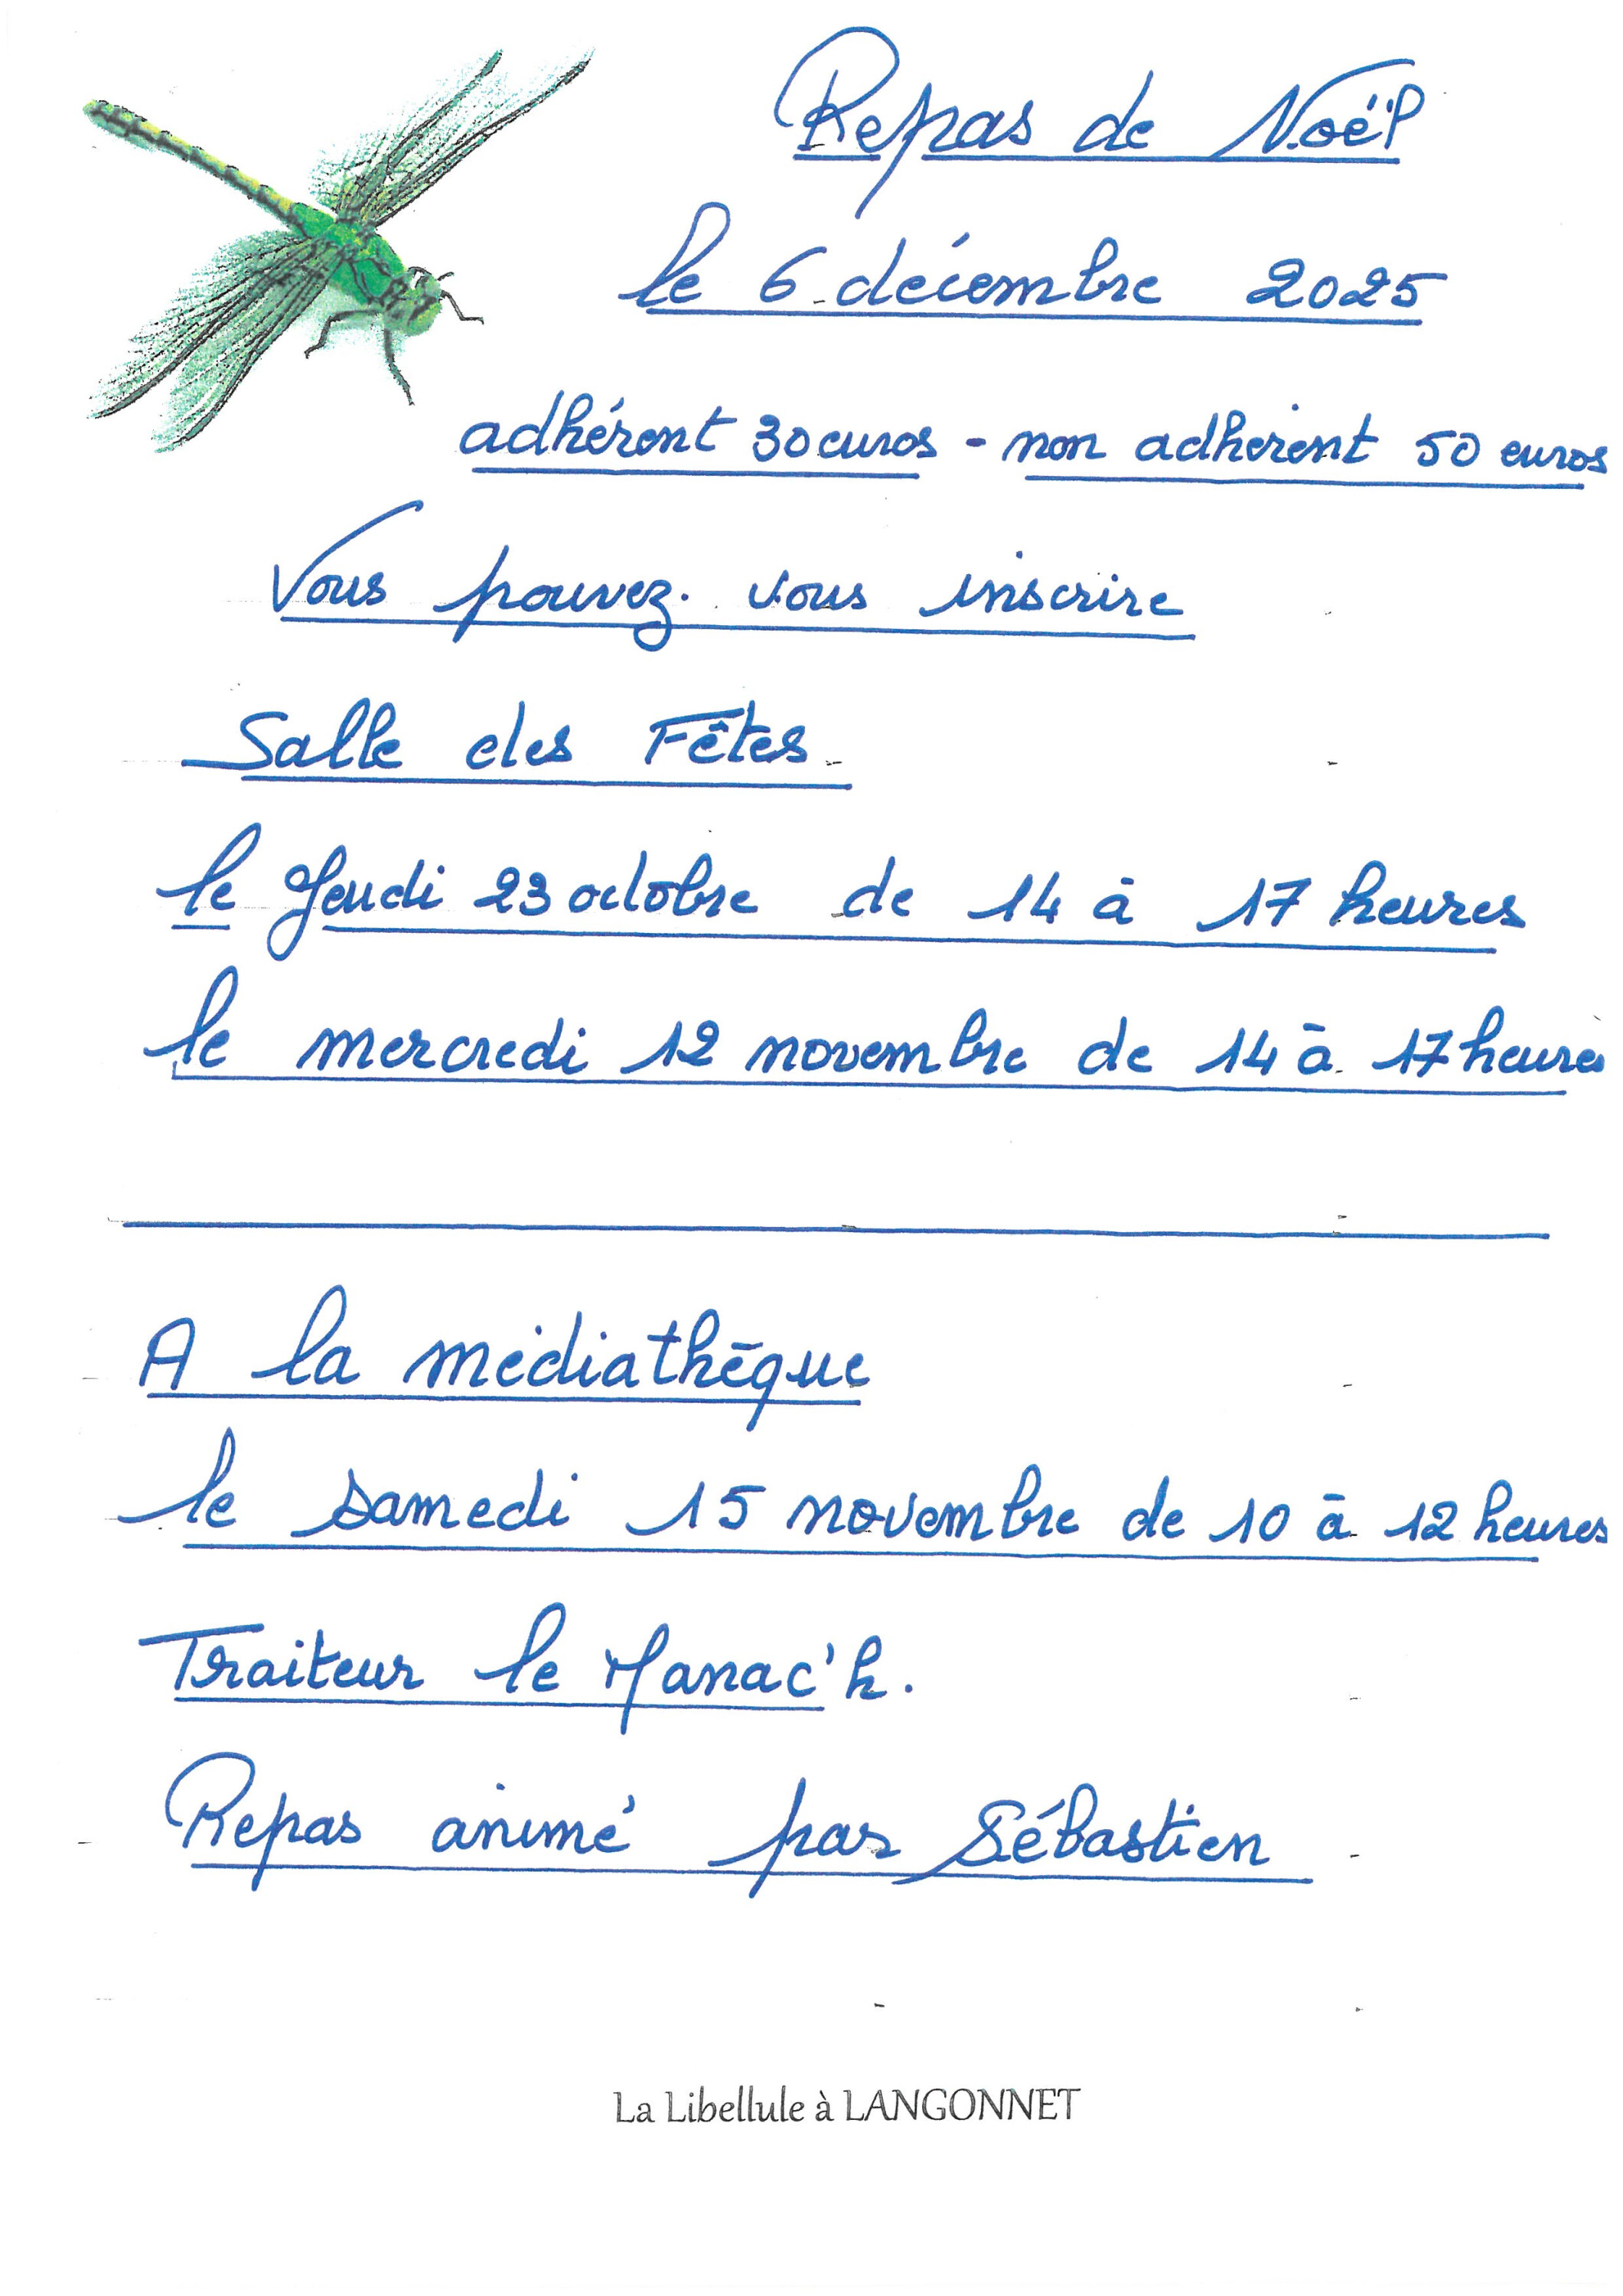 Repas de Noël
le 6 décembre 2025
adhérent 30 euros - non adhérent 50 euros
Vous pouvez vous inscrire
Salle des Fêtes
le Jeudi 23 octobre de 14 à 17 heures
le mercredi 12 novembre de 14 à 17 heures
A la médiathèque
le samedi 15 novembre de 10 à 12 heures
Traiteur le Manac'h.
Repas animé par Sébastien
La Libellule à LANGONNET